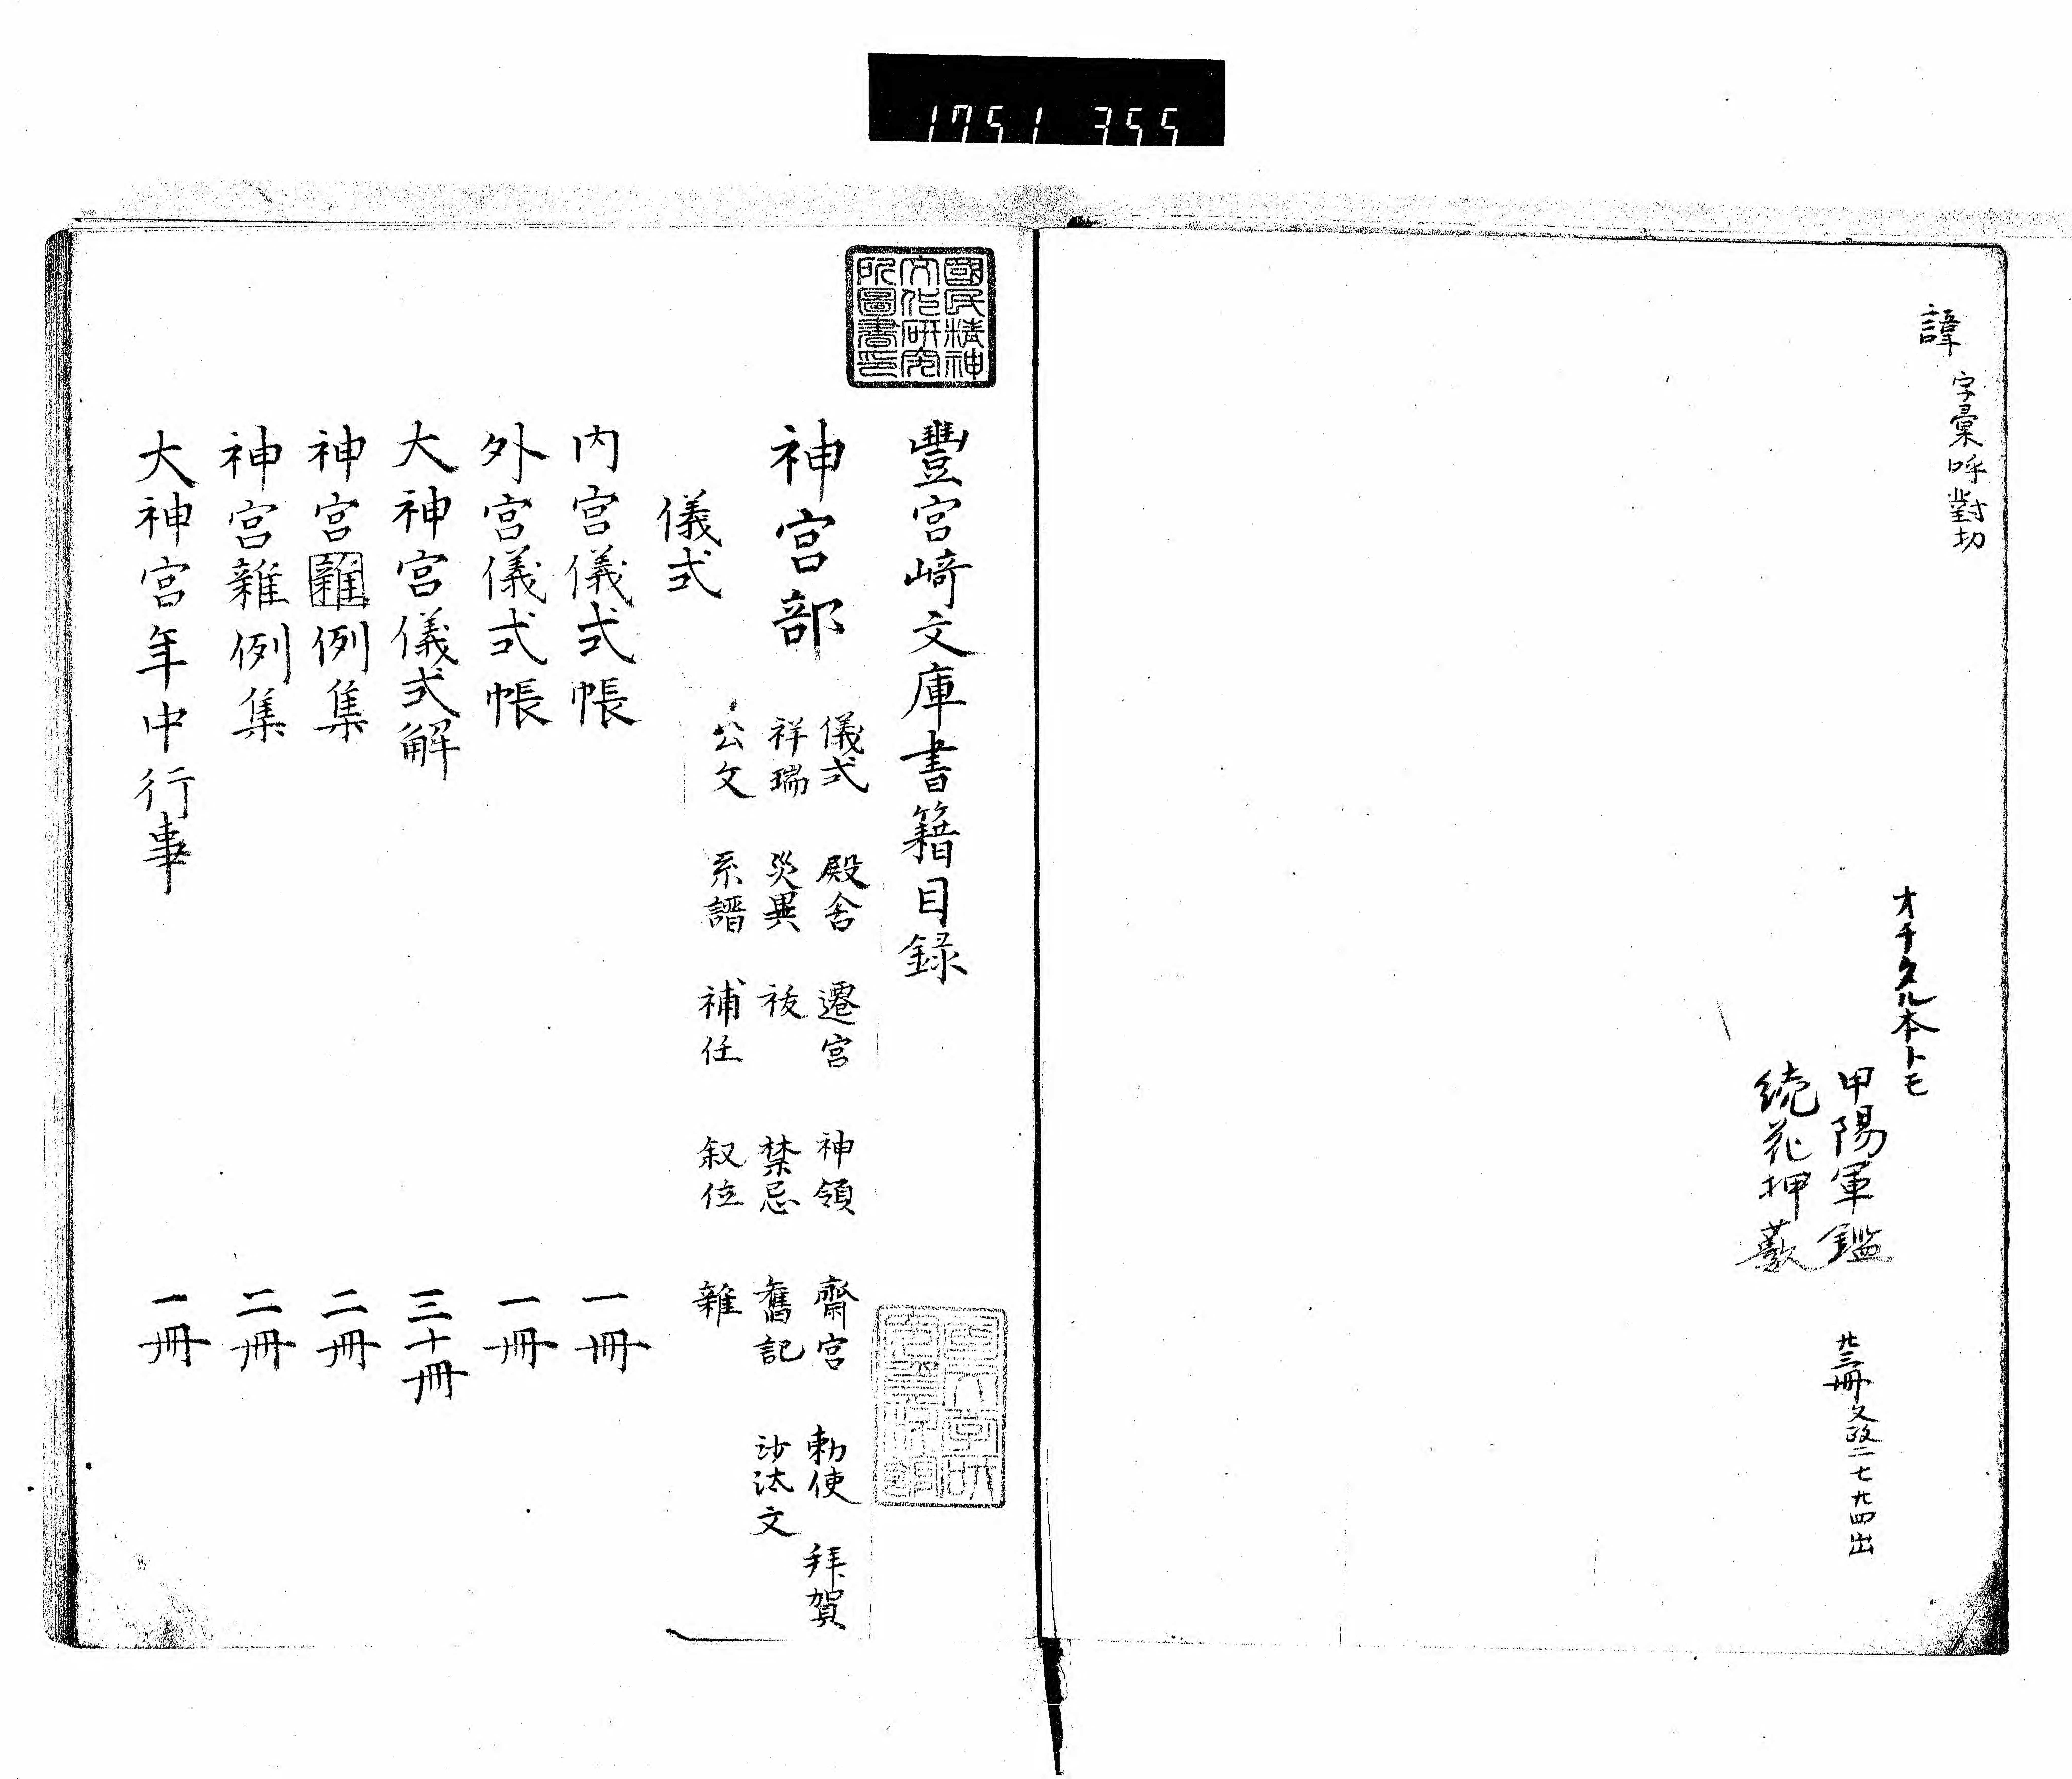 1751 355
諱 字彙呼對切
オチタル本トモ
甲陽軍鑑 廿三冊 文政二七廿四出
続花押藪
國民精神
文化研究
所圖書印
豐宮﨑文庫書籍目録
神宮部
儀式 殿舍 遷宮 神領 齋宮 勅使 拜賀
祥瑞 災異 祓 禁忌 舊記 沙汰文
公文 系譜 補任 叙位 雜
儀式
内宮儀式帳 一冊
外宮儀式帳 一冊
大神宮儀式解 三十冊
神宮雜例集 二冊
神宮雜例集 二冊
大神宮年中行事 一冊